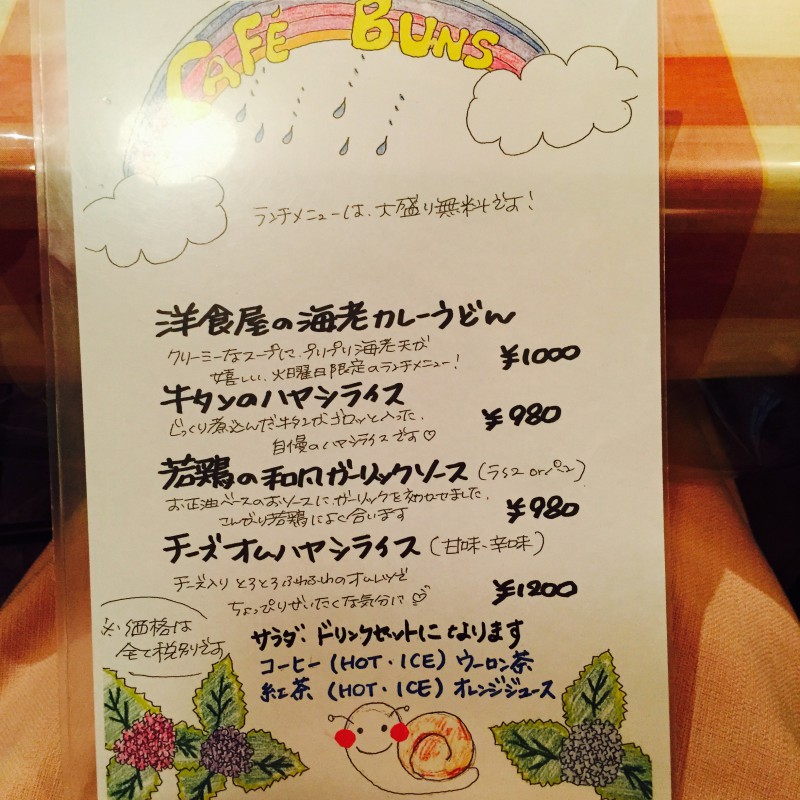 CAFÉ BUNS
ランチメニューは、大盛り無料です!
洋食屋の海老カレーうどん
クリーミーなスープに、プリプリ海老天が
嬉しい、火曜日限定のランチメニュー! ¥1000
牛タンのハヤシライス
じっくり煮込んだ牛タンがゴロッと入った、 ¥980
自慢のハヤシライスです♡
若鶏の和風ガーリックソース (ライス or パン)
お正油ベースのおソースにガーリックを効かせました。
こんがり若鶏によく合います ¥980
チーズオムハヤシライス (甘味・辛味)
チーズ入りとろとろふわふわのオムレツで
ちょっぴりぜいたくな気分に♡ ¥1200
※価格は
全て税別です
サラダ、ドリンクセットになります
コーヒー (HOT・ICE) ウーロン茶
紅茶 (HOT・ICE) オレンジジュース